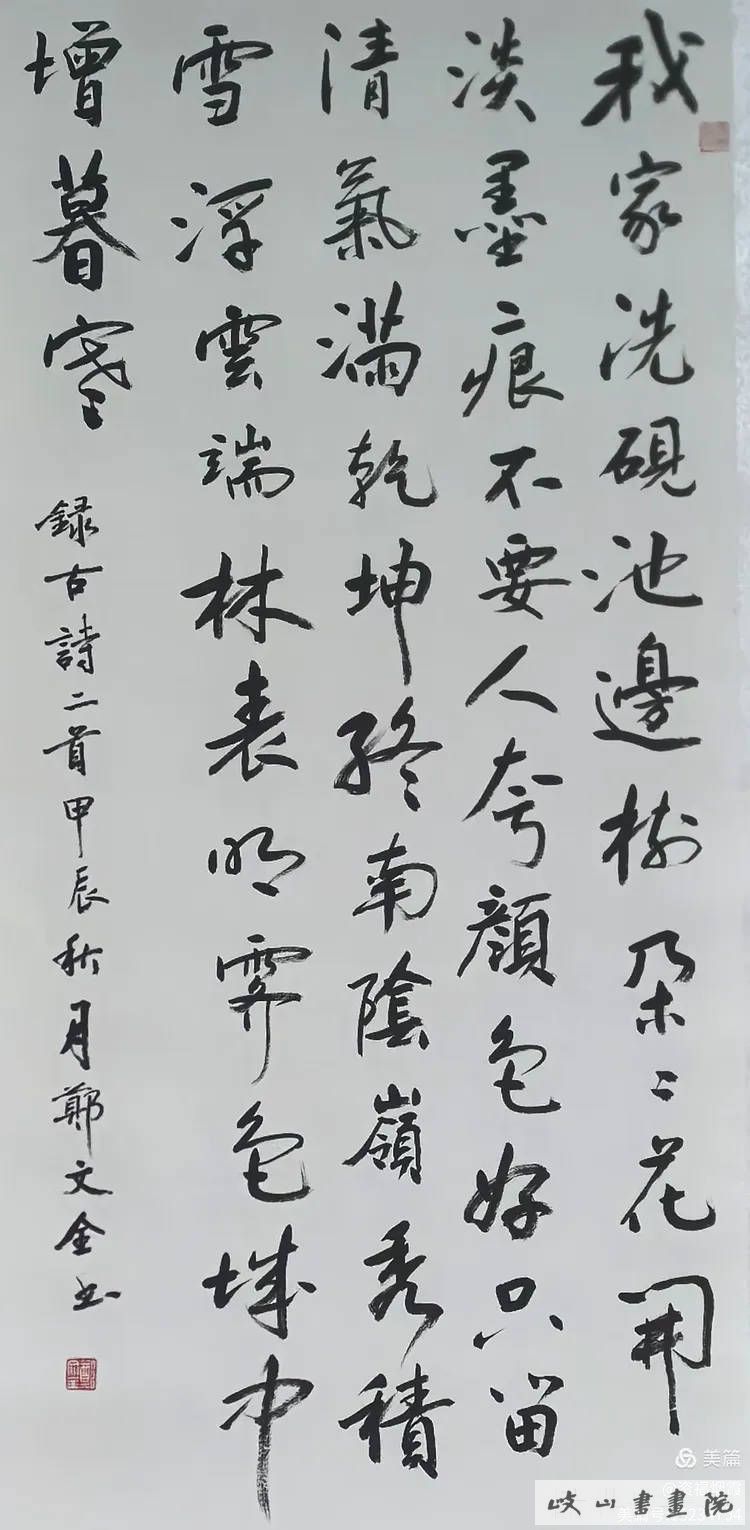 我家洗硯池邊樹朵〻花開
淡墨痕不要人夸顏色好只留
清氣滿乾坤終南陰嶺秀積
雪浮雲端林表明霽色城中
增暮寒
錄古詩二首甲辰秋月鄭文全书
美篇
岐山書畫院